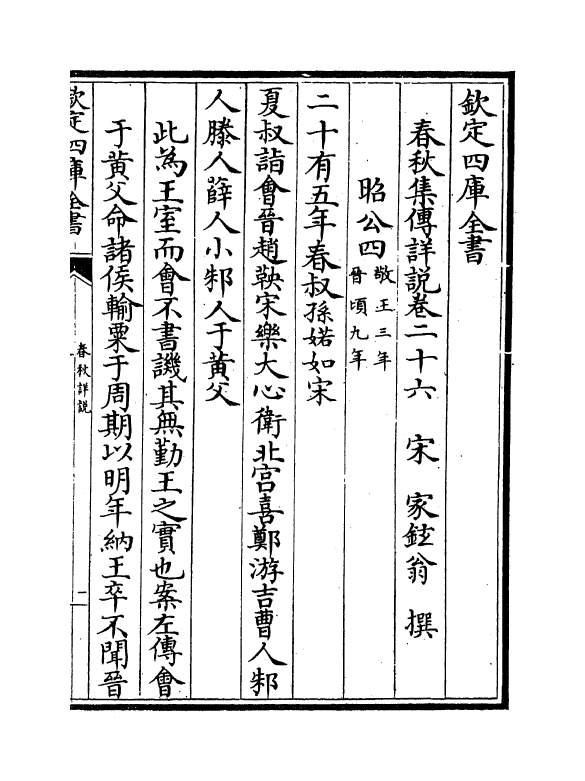 欽定四庫全書
春秋集傳詳說卷二十六 宋 家鉉翁 撰
昭公四
敬王三年
晉頃九年
二十有五年春叔孫婼如宋
夏叔詣會晉趙鞅宋樂大心衛北宮喜鄭游吉曹人邾
人滕人薛人小邾人于黃父
此為王室而會不書譏其無勤王之實也案左傳會
于黃父命諸侯輸粟于周期以明年納王卒不聞晉
欽定四庫全書
春秋詳說
一